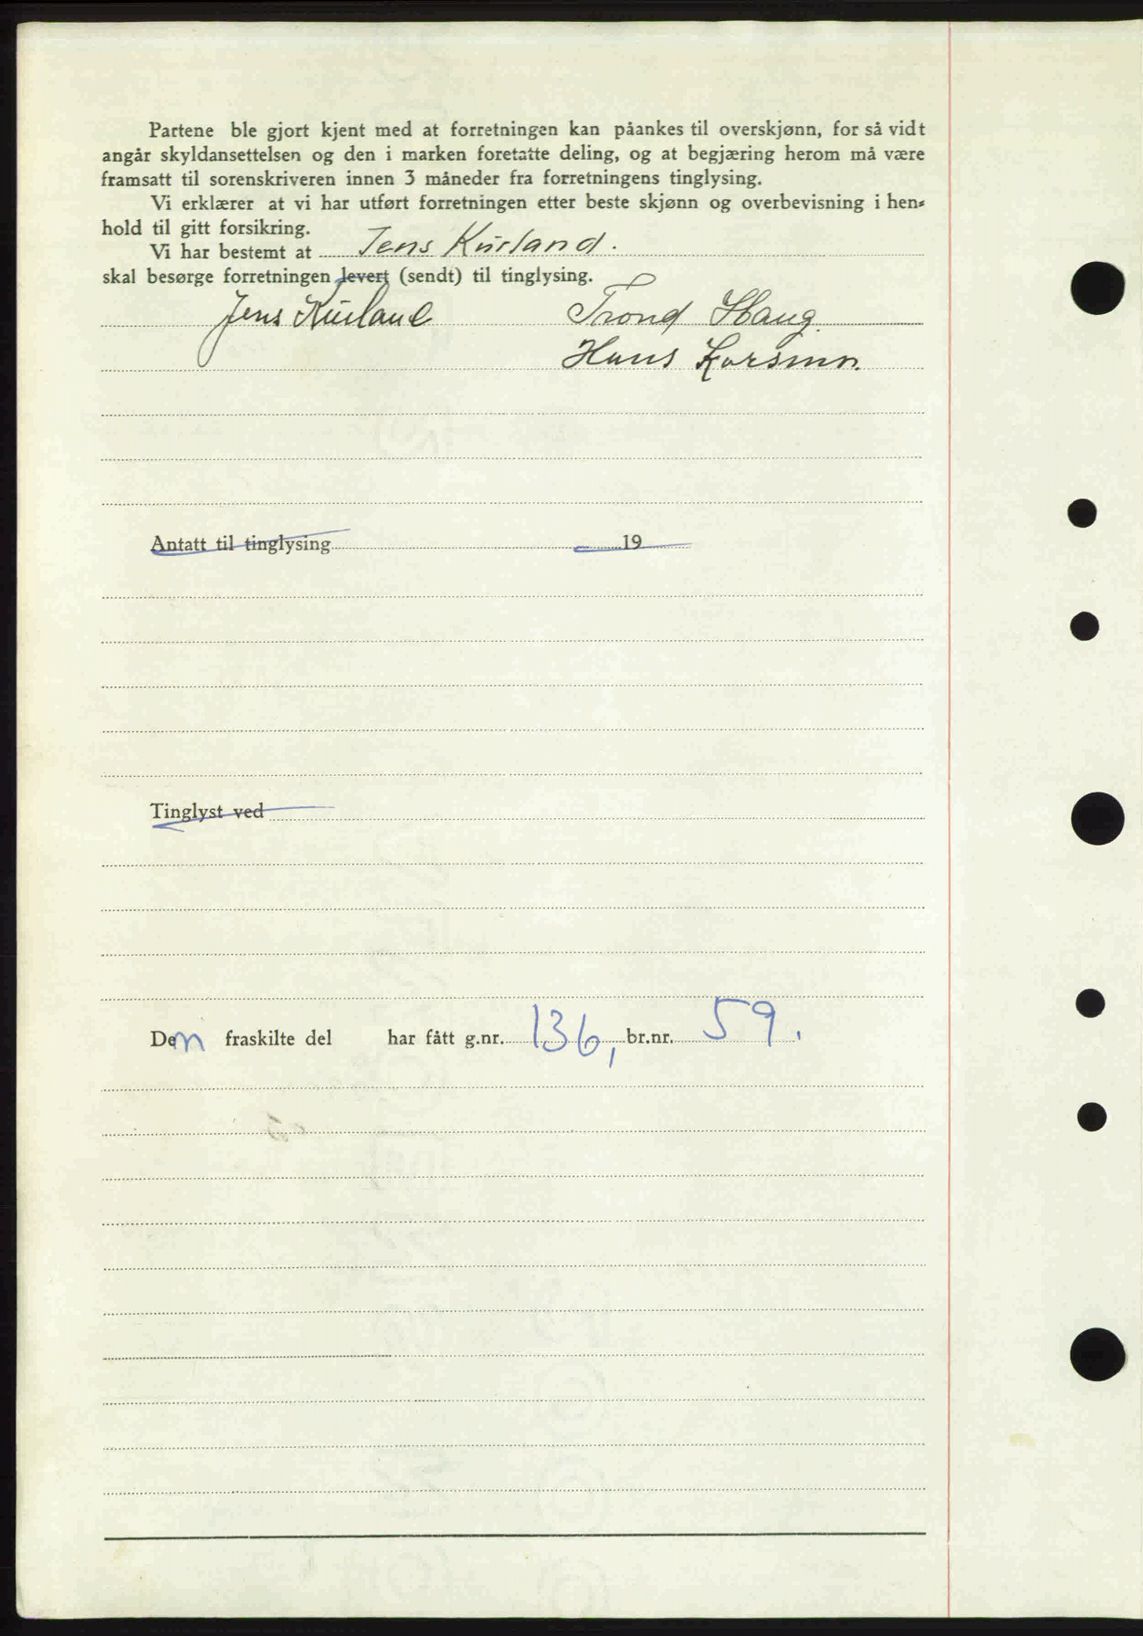 Partene ble gjort kjent med at forretningen kan påankes til overskjønn, for så vidt
angår skyldansettelsen og den i marken foretatte deling, og at begjæring herom må være
framsatt til sorenskriveren innen 3 måneder fra forretningens tinglysing.
Vi erklærer at vi har utført forretningen etter beste skjønn og overbevisning i hen-
hold til gitt forsikring.
Vi har bestemt at Jens Kurland.
skal besørge forretningen levert (sendt) til tinglysing.
Jens Kurland Trond Haug.
Hans Korsmo.
Antatt til tinglysing 19
Tinglyst ved
Den fraskilte del har fått g.nr. 136, br.nr. 59.